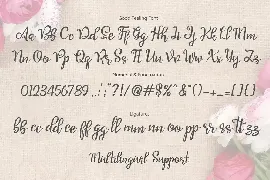 Good Feeling Font
Aa Bb Cc Dd Ee Ff Gg Hh Ii Jj Kk Ll Mm
Nn Oo Pp Qq Rr Ss Tt Uu Vv Ww Xx Yy Zz
Numeral & Punctuation
0123456789
Ligature
bb cc dd ee ff gg ll mm nn oo pp rr ss tt zz
Multilingual Support